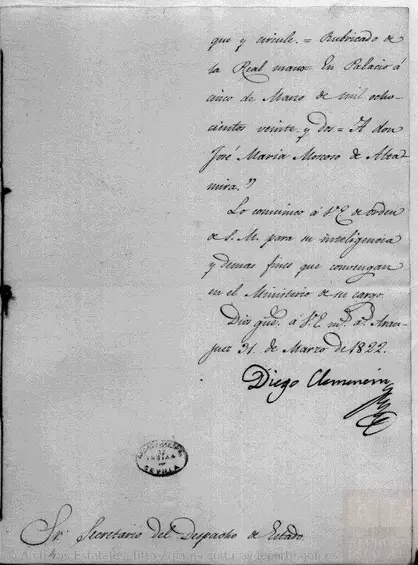 que y circule. = Rubricado de
la Real mano. En Palacio á
cinco de Marzo de mil ocho-
cientos veinte y dos = A don
José Maria Moscoso de Alta-
mira."
Lo comunico á V.E. de orden
de S. M. para su inteligencia
y demas fines que convengan
en el Ministerio de su cargo.
Dios gue. á V.E. ms. as. Aran-
juez 31. de Marzo de 1822.
Diego Clemencin
INDIAS
SEVILLA
Sr. Secretario del Despacho de Estado.